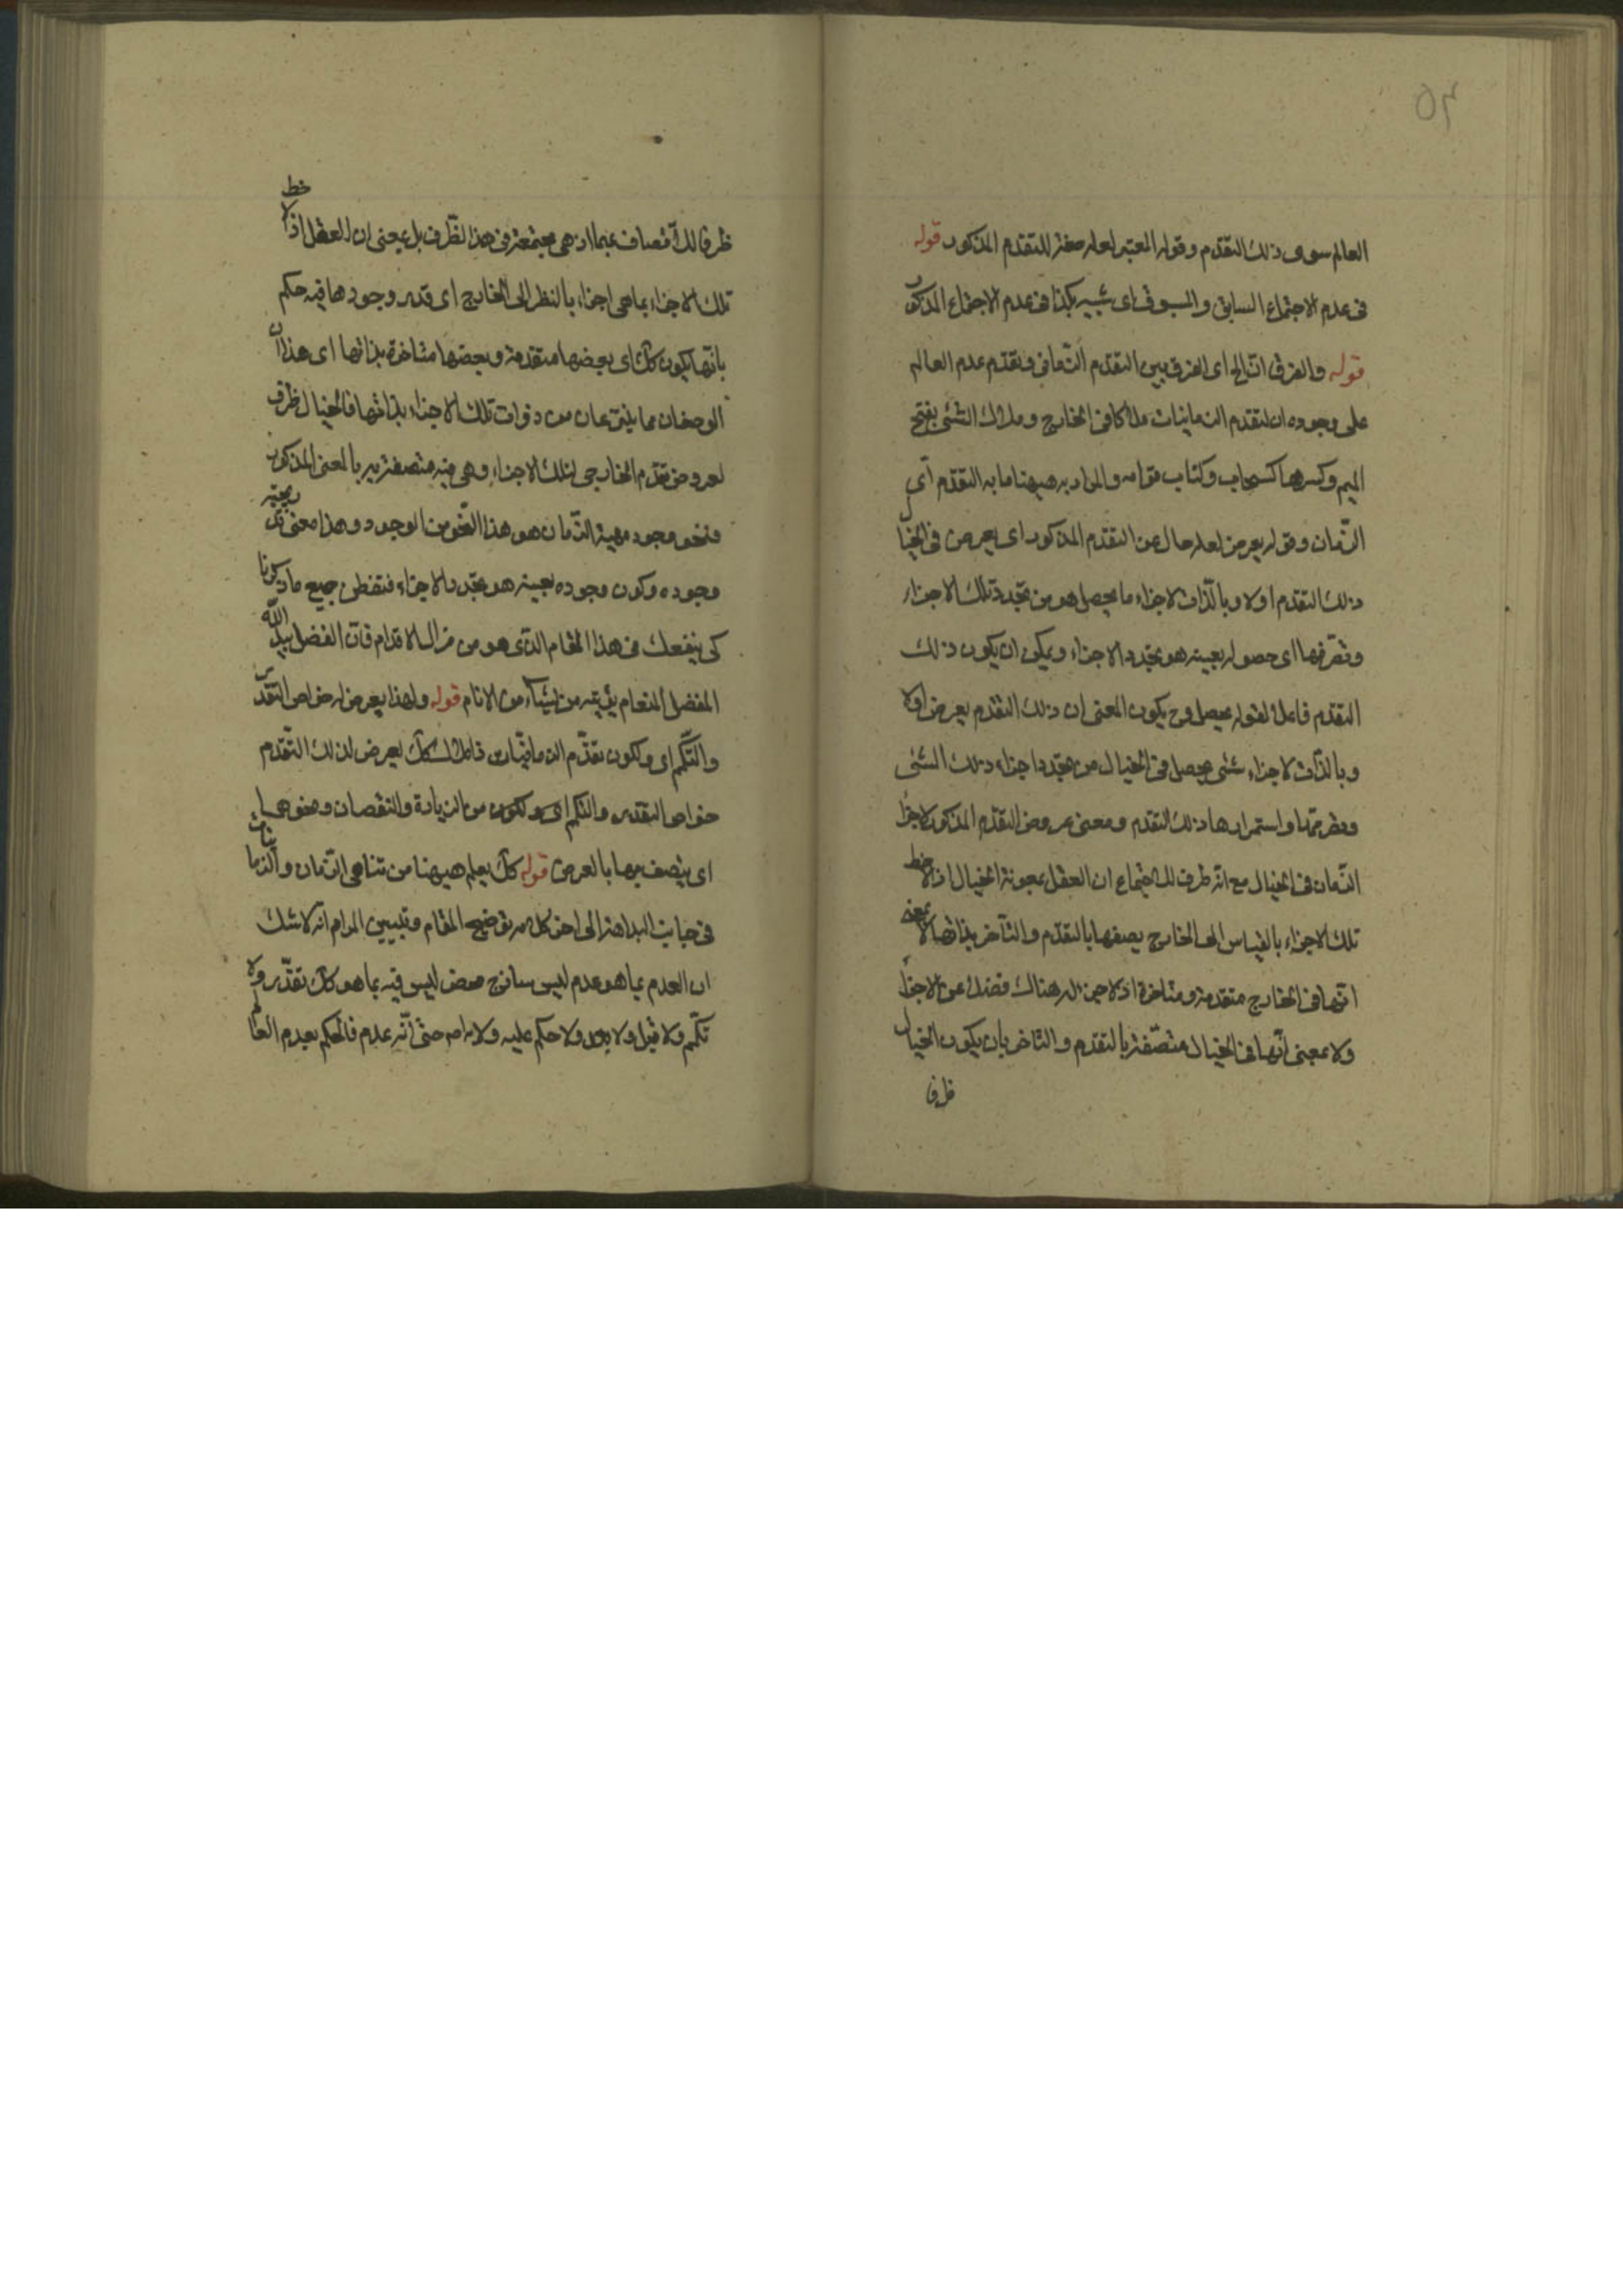 العالم سوى ذلك التقدم وقوله المعتبر لعله صفة للتقدم المذكور قوله
فى عدم الاجتماع السابق والمسبوق اى شبيه بكذا فى عدم الاجتماع المذكور
قوله والفرق الخ اى الفرق بين التقدم الزمانى وتقدم عدم العالم
على وجوده ان لتقدم الزمانيات ملاكا فى الخارج وملاك الشئ بفتح
الميم وكسرها كسحاب وكتاب قوامه والمراد به هيهنا ما به التقدم اى
الزمان وقوله يعرض لعله حال عن التقدم المذكور اى يعرض فى الخيال
ذلك التقدم اولا وبالذات لاجزاء ما يحصل هو من تجدد تلك الاجزاء
وتصرمها اى حصوله بعينه هو تجدد الاجزاء ويمكن ان يكون ذلك
التقدم فاعلا لقوله يحصل وح يكون المعنى ان ذلك التقدم يعرض اولا
وبالذات لاجزاء شئ يحصل فى الخيال من تجدد اجزاء ذلك الشئ
وتصرمها واستمرارها ذلك التقدم ومعنى عروض التقدم المذكور لاجزاء
الزمان فى الخيال مع انه ظرف للاجتماع ان العقل بمعونة الخيال اذا لاحظ
تلك الاجزاء بالقياس الى الخارج يصفها بالتقدم والتأخر بذاتها لا بمعنى
انها فى الخارج متقدمة ومتأخرة اذ لا حين له هناك فضلا عن الاجزاء
ولا بمعنى انها فى الخيال متصفة بالتقدم والتاخر بان يكون الخيال
ظرفا
ظرفا للاتصاف بهما اذ هى مجتمعة فى هذا الظرف بل بمعنى ان العقل اذا لاحظ
تلك الاجزاء بما هى اجزاء بالنظر الى الخارج اى قدر وجودها فيه حكم
بانها يكون كك اى بعضها متقدمة وبعضها متأخرة بذاتها اى هذان
الوصفان مما ينتزعان من ذوات تلك الاجزاء بذاتها فالخيال ظرف
لعروض تقدم الخارجى لتلك الاجزاء وهى فيه متصفة به بالمعنى المذكور
فنحو وجود مهية الزمان هو هذا النحو من الوجود وهذا معنى تدريجية
وجوده وكون وجوده بعينه هو تجدد الاجزاء فتفطن جميع ما ذكرنا
كى ينفعك فى هذا المقام الذى هو من مزال الاقدام فان الفضل بيد الله
المفضل المنعام يؤتيه من يشاء من الانام قوله ولهذا يعرض له خواص التقدر
والتكمم اى ولكون تقدم الزمانيات ذا ملاك كك يعرض لذلك التقدم
خواص التقدر والتكمم اى من الزيادة والنقصان ونحوهما
اى يتصف بها بالعرض قوله كك يعلم هيهنا من تناهى الزمان والزمانيات
فى جانب البداهة الى اخر كلامه توضيح المقام وتبيين المرام انه لا شك
ان العدم بما هو عدم ليس ساذج محض ليس فيه بما هو كك تقدر ولا
تكمم ولا قبل ولا بعد ولا حكم عليه ولا به حتى انه عدم فالحكم بعدم العالم